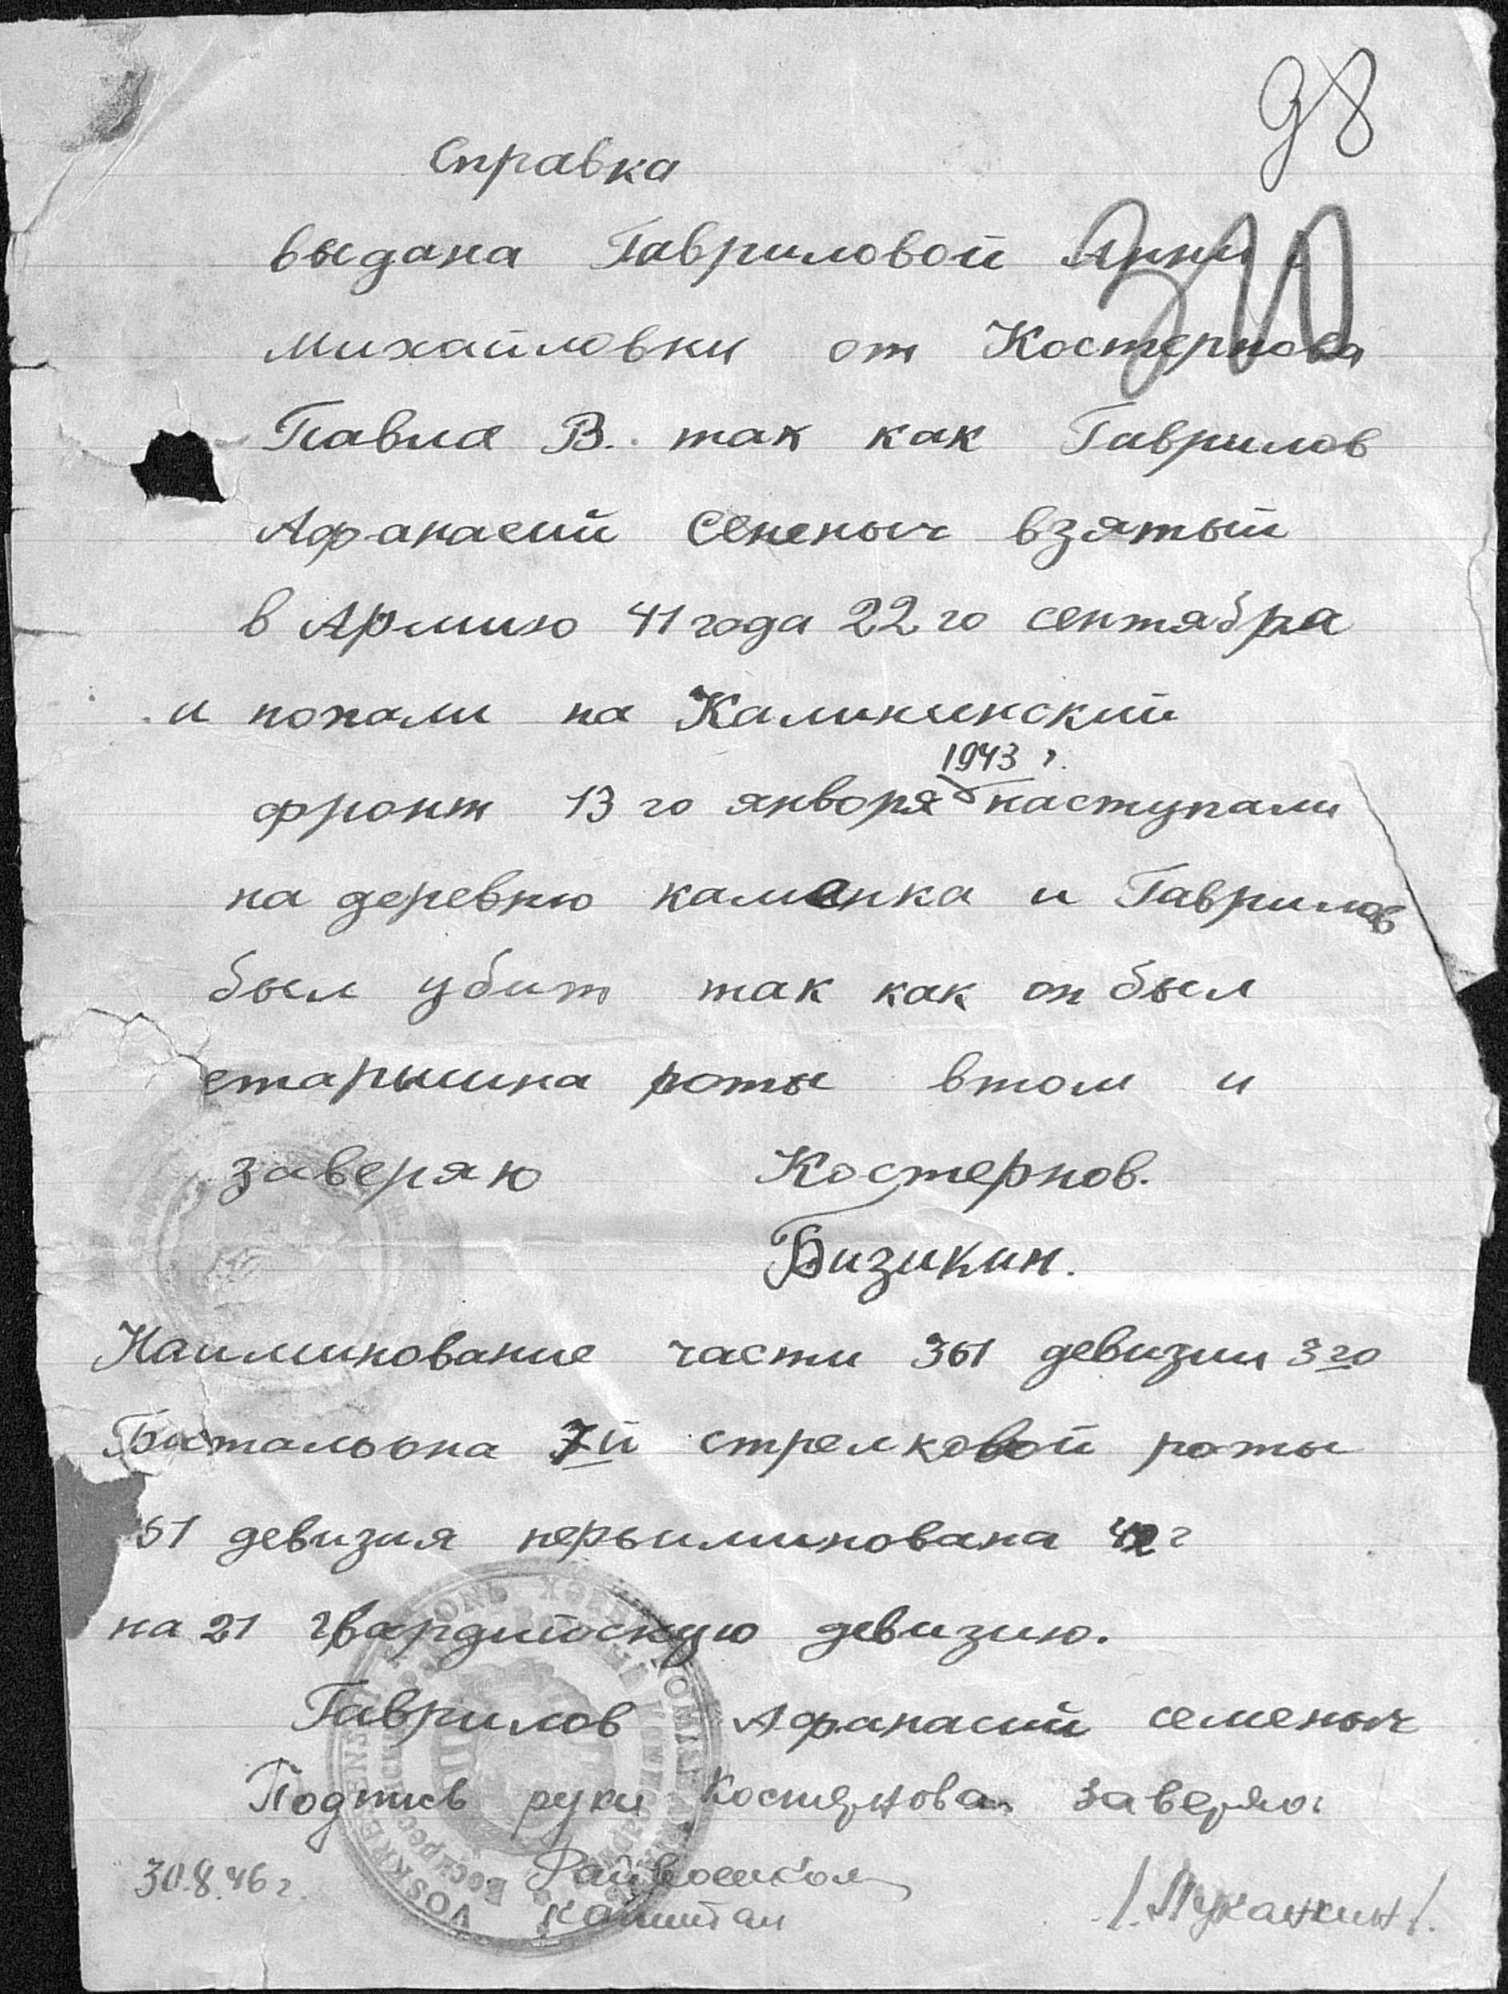 98
310
Справка
выдана Гавриловой Анни
Михайловни от Костернова
Павла В. так как Гаврилов
Афанасий Семеныч взятый
в Армию 41 года 22 го сентября
и попали на Калининский
1943 г.
фронт 13 го января наступали
на деревню каманка и Гаврилов
был убит так как он был
старышна роты втом и
заверяю Костернов.
Бизикин.
Наиминование части 361 девизии 3го
Батальона 7й стрелковой роты
61 девизия перьиминована 42 г
на 21 гвардитоскую девизию.
Гаврилов Афанасий семеныч
Подпись руки Костернова заверяю:
30.8.46 г. Райвоенком
капитан /Луканкин/.